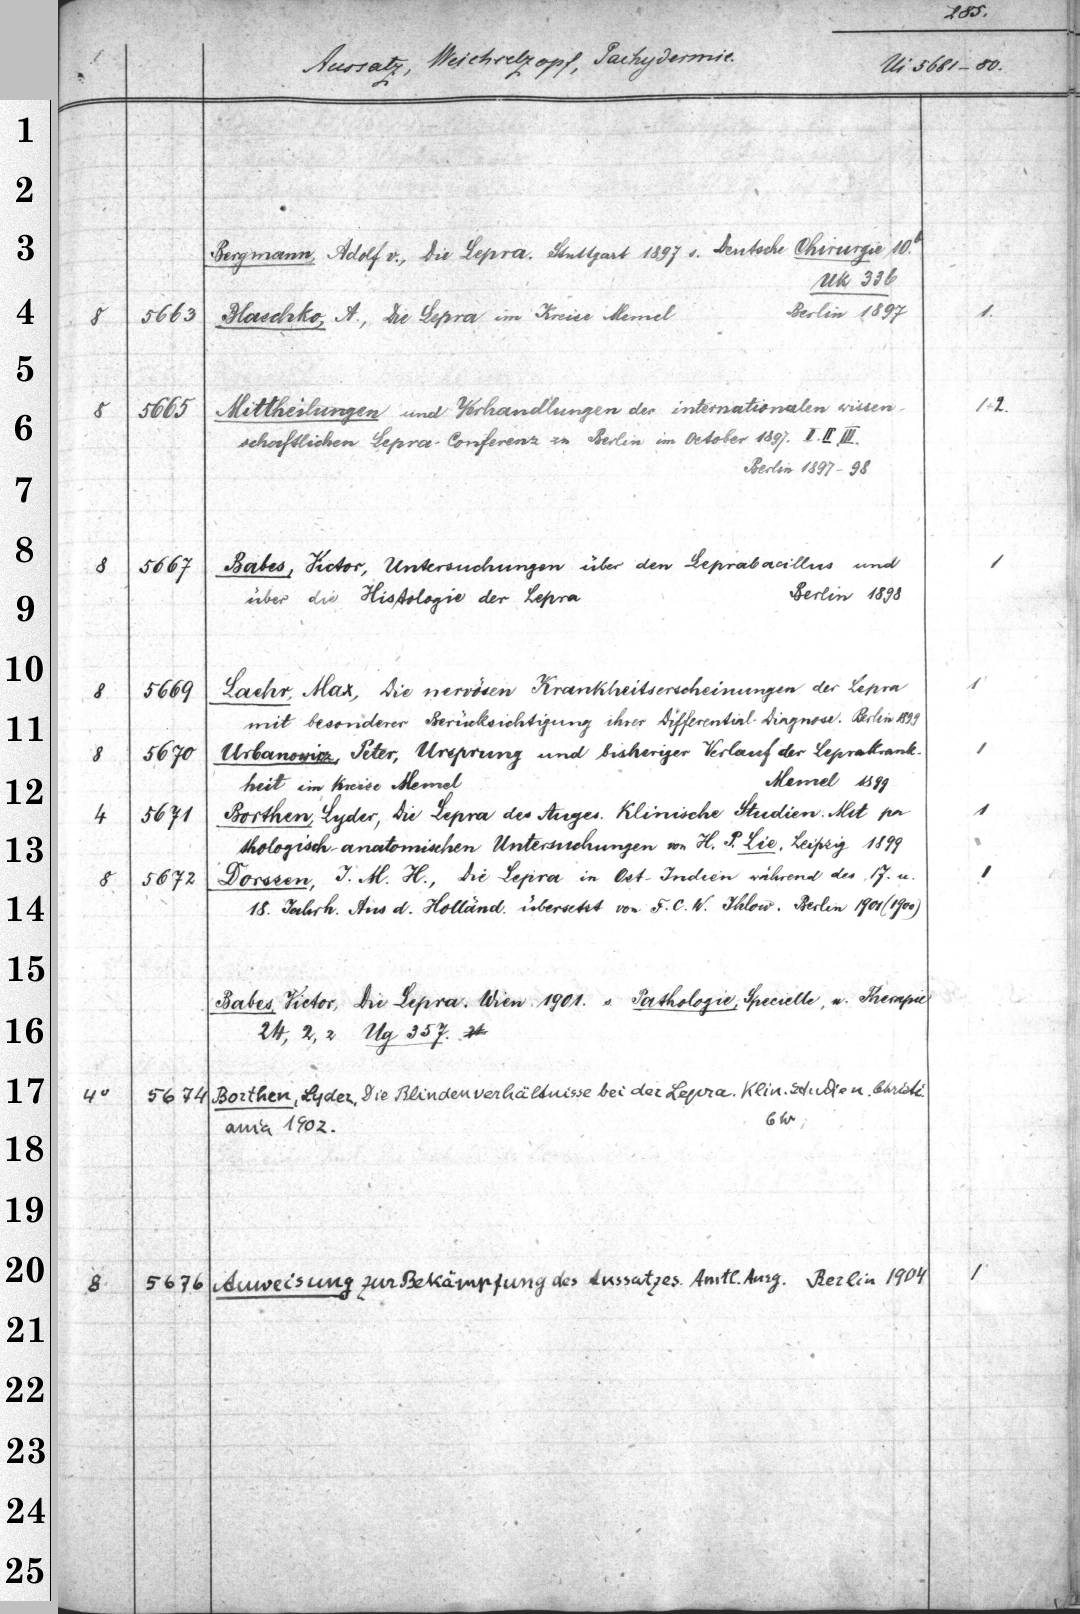 285.
Aussatz, Weichselzopf, Pachydermie. Ui 5681-80.
1
2
3 Bergmann, Adolf v., Die Lepra. Stuttgart 1897 s. Deutsche Chirurgie 10.b
Uk 336
4 8 5663 Blaschko, A., Die Lepra im Kreise Memel Berlin 1897 1.
5
8 5665 Mittheilungen und Verhandlungen der internationalen wissen- 1+2.
6 schaftlichen Lepra-Conferenz zu Berlin im October 1897. I. II III.
Berlin 1897-98
7
8 8 5667 Babes, Victor, Untersuchungen über den Leprabacillus und 1
9 über die Histologie der Lepra Berlin 1898
10 8 5669 Laehr, Max, Die nervösen Krankheitserscheinungen der Lepra 1
11 mit besonderer Berücksichtigung ihrer Differential-Diagnose. Berlin 1899
8 5670 Urbanowicz, Peter, Ursprung und bisheriger Verlauf der Leprakrank- 1
12 heit im Kreise Memel Memel 1899
4 5671 Borthen, Lyder, Die Lepra des Auges. Klinische Studien. Mit pa 1
13 thologisch-anatomischen Untersuchungen von H. P. Lie. Leipzig 1899
8 5672 Dorssen, J. M. H., Die Lepra in Ost-Indien während des 17. u. 1
14 18. Jahrh. Aus d. Holländ. übersetzt von F. C. W. Ihlow. Berlin 1901 (1900)
15
Babes, Victor, Die Lepra. Wien 1901. s. Pathologie, Specielle, u. Therapie
16 24, 2, 2 Ug 357.
17 4° 5674 Borthen, Lyder, Die Blindenverhältnisse bei der Lepra. Klin. Studien. Christi
ania 1902.
18
19
20 8 5676 Anweisung zur Bekämpfung des Aussatzes. Amtl. Ausg. Berlin 1904 1
21
22
23
24
25